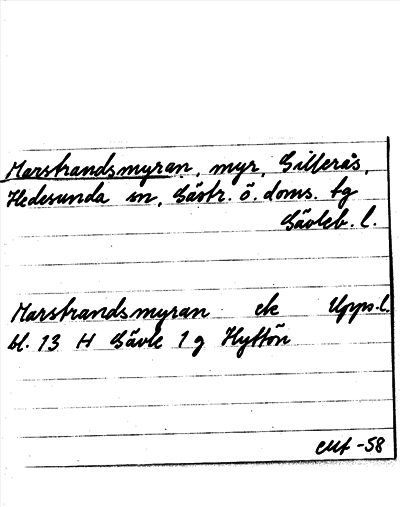 Marstrandsmyran, myr, Gillerås,
Hedesunda sn, Gästr. ö. doms. tg
Gävleb. l.
Marstrandsmyran ek Upps.l.
bl. 13 H Gävle 1 g Hyttön
-58